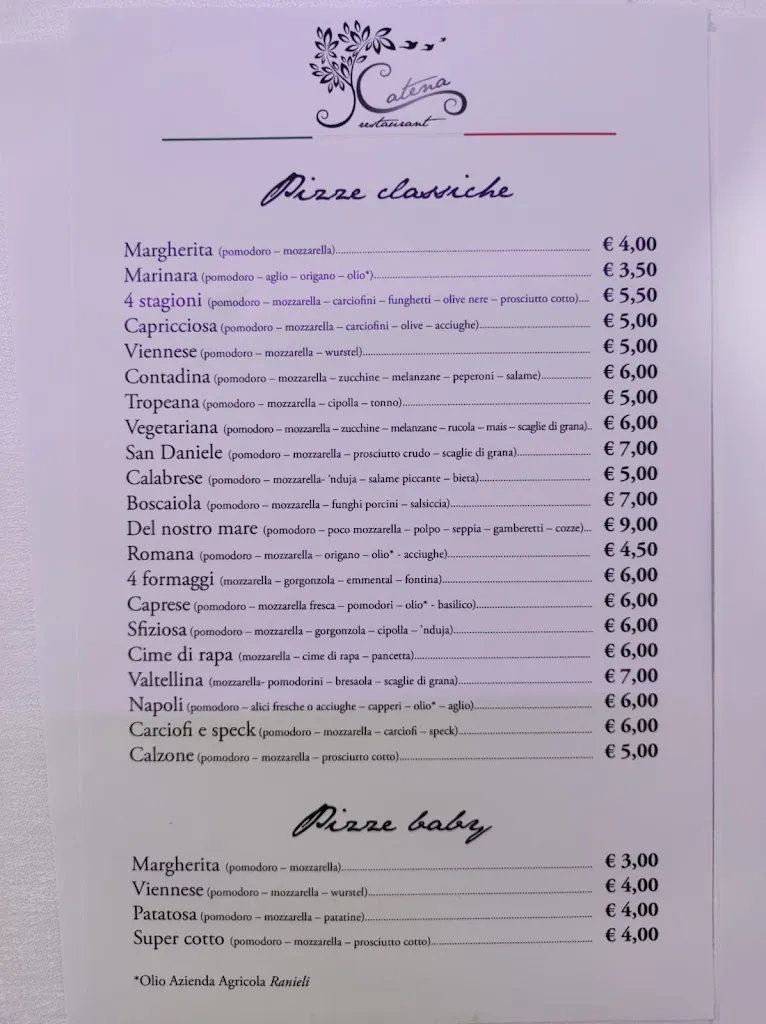 Catena
restaurant
Pizze classiche
Margherita (pomodoro – mozzarella)........ € 4,00
Marinara (pomodoro – aglio – origano – olio*)........ € 3,50
4 stagioni (pomodoro – mozzarella – carciofini – funghetti – olive nere – prosciutto cotto).... € 5,50
Capricciosa (pomodoro – mozzarella – carciofini – olive – acciughe)........ € 5,00
Viennese (pomodoro – mozzarella – wurstel)........ € 5,00
Contadina (pomodoro – mozzarella – zucchine – melanzane – peperoni – salame)........ € 6,00
Tropeana (pomodoro – mozzarella – cipolla – tonno)........ € 5,00
Vegetariana (pomodoro – mozzarella – zucchine – melanzane – rucola – mais – scaglie di grana).. € 6,00
San Daniele (pomodoro – mozzarella – prosciutto crudo – scaglie di grana)........ € 7,00
Calabrese (pomodoro – mozzarella- 'nduja – salame piccante – bieta)........ € 5,00
Boscaiola (pomodoro – mozzarella – funghi porcini – salsiccia)........ € 7,00
Del nostro mare (pomodoro – poco mozzarella – polpo – seppia – gamberetti – cozze)... € 9,00
Romana (pomodoro – mozzarella – origano – olio* - acciughe)........ € 4,50
4 formaggi (mozzarella – gorgonzola – emmental – fontina)........ € 6,00
Caprese (pomodoro – mozzarella fresca – pomodori – olio* - basilico)........ € 6,00
Sfiziosa (pomodoro – mozzarella – gorgonzola – cipolla – 'nduja)........ € 6,00
Cime di rapa (mozzarella – cime di rapa – pancetta)........ € 6,00
Valtellina (mozzarella- pomodorini – bresaola – scaglie di grana)........ € 7,00
Napoli (pomodoro – alici fresche o acciughe – capperi – olio* – aglio)........ € 6,00
Carciofi e speck (pomodoro – mozzarella – carciofi – speck)........ € 6,00
Calzone (pomodoro – mozzarella – prosciutto cotto)........ € 5,00
Pizze baby
Margherita (pomodoro – mozzarella)........ € 3,00
Viennese (pomodoro – mozzarella – wurstel)........ € 4,00
Patatosa (pomodoro – mozzarella – patatine)........ € 4,00
Super cotto (pomodoro – mozzarella – prosciutto cotto)........ € 4,00
*Olio Azienda Agricola Ranieli